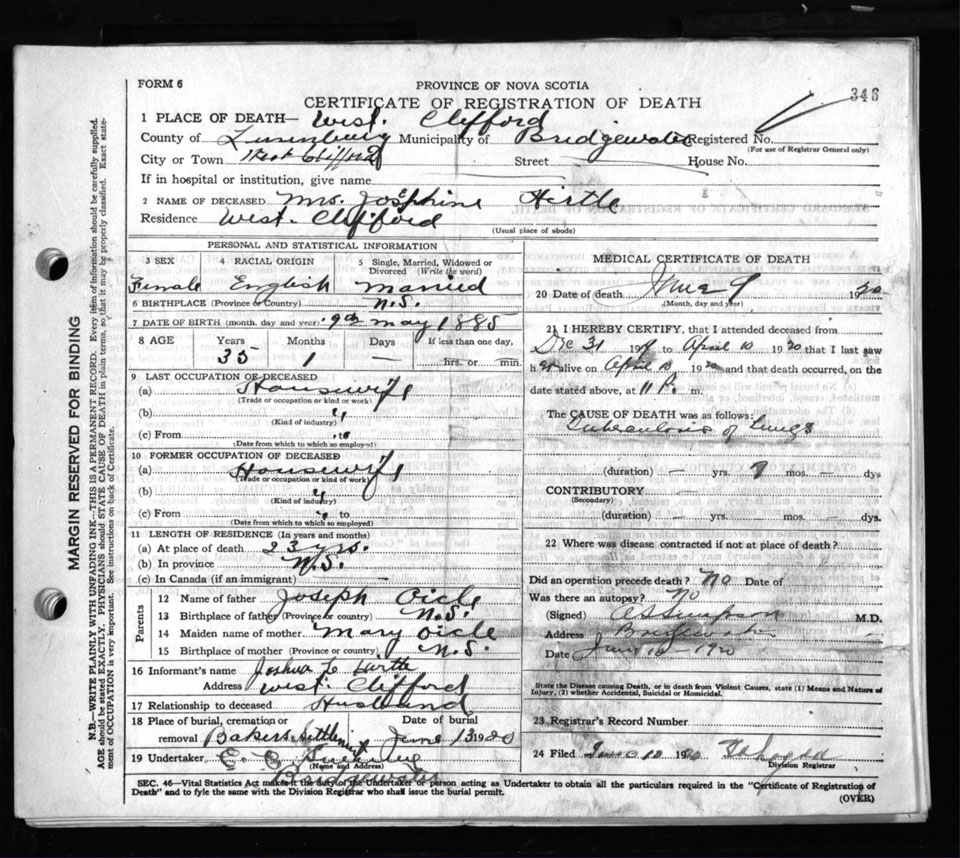 FORM 6
PROVINCE OF NOVA SCOTIA
346
CERTIFICATE OF REGISTRATION OF DEATH
1 PLACE OF DEATH— West Clifford
County of Lunenburg Municipality of Bridgewater Registered No.
(For use of Registrar General only)
City or Town West Clifford Street House No.
If in hospital or institution, give name
2 NAME OF DECEASED Mrs. Josephine Hirtle
Residence West Clifford
(Usual place of abode)
PERSONAL AND STATISTICAL INFORMATION
3 SEX 4 RACIAL ORIGIN 5 Single, Married, Widowed or Divorced (Write the word)
Female English Married
6 BIRTHPLACE (Province or Country) N.S.
7 DATE OF BIRTH (month, day and year) 9th May 1885
8 AGE Years Months Days If less than one day,
35 1 — hrs. or min.
9 LAST OCCUPATION OF DECEASED
(a) Housewife
(Trade or occupation or kind of work)
(b) "
(Kind of industry)
(c) From "
(Date from which to which so employed)
10 FORMER OCCUPATION OF DECEASED
(a) Housewife
(Trade or occupation or kind of work)
(b) "
(Kind of industry)
(c) From "
(Date from which to which so employed)
11 LENGTH OF RESIDENCE (In years and months)
(a) At place of death 23 yrs.
(b) In province N.S.
(c) In Canada (if an immigrant)
Parents
12 Name of father Joseph Oicle
13 Birthplace of father (Province or country) N.S.
14 Maiden name of mother Mary Oicle
15 Birthplace of mother (Province or country) N.S.
16 Informant's name Joshua Hirtle
Address West Clifford
17 Relationship to deceased Husband
18 Place of burial, cremation or Date of burial
removal Bakers Settlement June 13 1920
19 Undertaker E.
(Name and Address)
Bridgewater
MEDICAL CERTIFICATE OF DEATH
20 Date of death June 1920
(Month, day and year)
21 I HEREBY CERTIFY, that I attended deceased from
Dec 31 19 to April 10 1920 that I last saw
her alive on April 10 1920 and that death occurred, on the
date stated above, at 11 P. m.
The CAUSE OF DEATH was as follows:
Tuberculosis of Lungs
(duration) — yrs. mos. — dys
CONTRIBUTORY —
(Secondary)
(duration) — yrs. — mos. — dys.
22 Where was disease contracted if not at place of death?
Did an operation precede death? No Date of
Was there an autopsy? No
(Signed) Simpson M.D.
Address Bridgewater
Date June 1920
State the Disease causing Death, or in death from Violent Causes, state (1) Means and Nature of
Injury, (2) whether Accidental, Suicidal or Homicidal.
23 Registrar's Record Number
24 Filed June 12 1920
Division Registrar
SEC. 46—Vital Statistics Act makes it the duty of the Undertaker or person acting as Undertaker to obtain all the particulars required in the "Certificate of Registration of
Death" and to fyle the same with the Division Registrar who shall issue the burial permit.
(OVER)
MARGIN RESERVED FOR BINDING
N.B.—WRITE PLAINLY WITH UNFADING INK—THIS IS A PERMANENT RECORD. Every item of information should be carefully supplied.
AGE should be stated EXACTLY. PHYSICIANS should STATE CAUSE OF DEATH in plain terms, so that it may be properly classified. Exact state-
ment of OCCUPATION is very important. See instructions on back of Certificate.